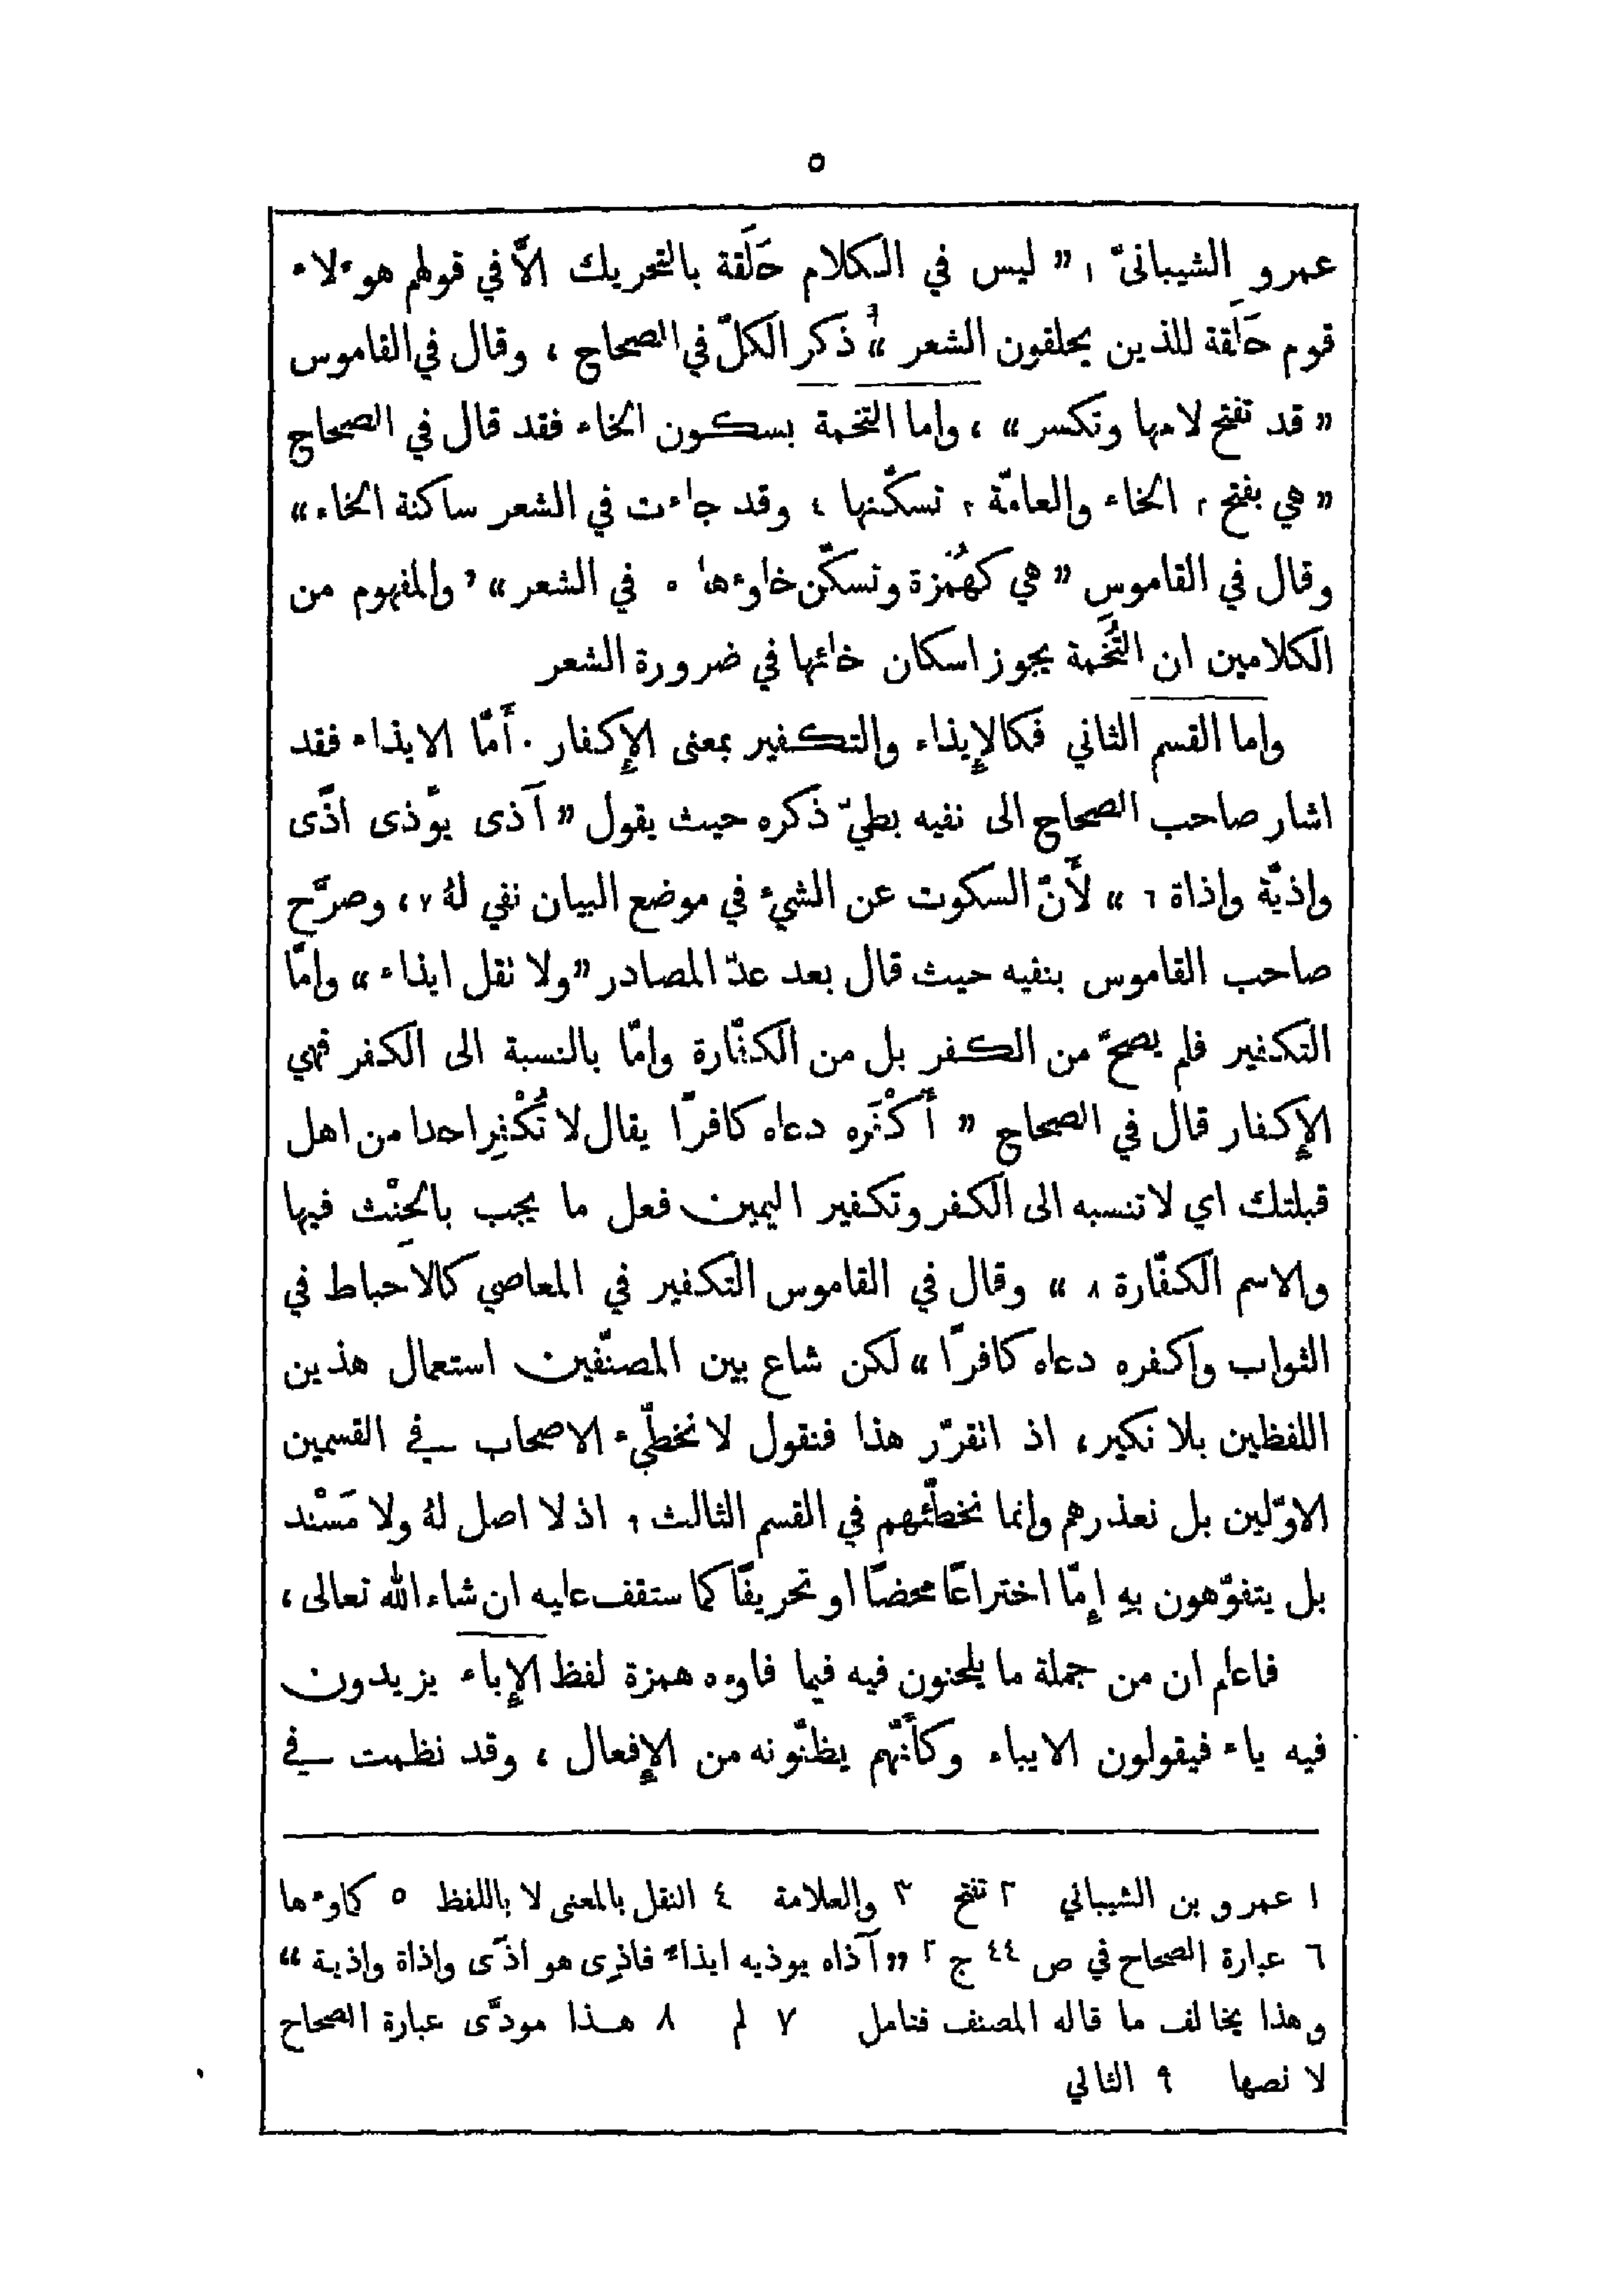 ٥
عمرو الشيبانىّ ١ ” ليس في الكلام حَلَقة بالتحريك الاَّ في قولهم هوءلاء
قوم حَلَقة للذين يحلقون الشعر “ ذكر الكلّ في الصحاح ، وقال في القاموس
” قد تفتح لامها وتكسر “ ، واما التخمة بسكون الخاء فقد قال في الصحاح
” هي بفتح ٢ الخاء والعامّة ٣ تسكّنها ٤ وقد جاءت في الشعر ساكنة الخاء “
وقال في القاموس ” هي كهُمَزة وتسكّن خاوءها ٥ في الشعر “ ، والمفهوم من
الكلامين ان التُّخَمة يجوز اسكان خائها في ضرورة الشعر
واما القسم الثاني فكالإِيذاء والتكفير بمعنى الإِكفار . أَمّا الايذاء فقد
اشار صاحب الصحاج الى نفيه بطيّ ذكره حيث يقول ” آذى يوّذى اذًى
واذيّة واذاة ٦ “ لأَنّ السكوت عن الشيءُ في موضع البيان نفي لهُ ٧ ، وصرَّح
صاحب القاموس بنفيه حيث قال بعد عدّ المصادر ” ولا نقل ايذاء “ وامّا
التكفير فلم يصحّ من الكفر بل من الكفّارة وامّا بالنسبة الى الكفر فهي
الإِكفار قال في الصحاح ” أَكْفَره دعاه كافرًا يقال لا تُكْفِر احدا من اهل
قبلتك اي لا تنسبه الى الكفر وتكفير اليمين فعل ما يجب بالحِنْث فيها
والاسم الكفّارة ٨ “ وقال في القاموس التكفير في المعاصي كالاحباط في
الثواب واكفره دعاه كافرًا “ لكن شاع بين المصنّفين استعمال هذين
اللفظين بلا نكير ، اذ انقرّر هذا فنقول لا نخطّيء الاصحاب في القسمين
الاوّلين بل نعذرهم وانما نخطّئهم في القسم الثالث ٩ اذ لا اصل لهُ ولا مَسْند
بل يتفوّهون بهِ إِمّا اختراعًا محضًا او تحريفًا كما ستقف عليه ان شاء الله تعالى ،
فاعلم ان من جملة ما يلحنون فيه فيما فاوءه همزة لفظ الإِباء يزيدون
فيه ياء فيقولون الايباء وكأَنّهم يظنّونه من الإِفعال ، وقد نظمت في
١ عمرو بن الشيباني ٢ تفتح ٣ والعلامة ٤ النقل بالمعنى لا باللفظ ٥ كاوءها
٦ عبارة الصحاح في ص ٤٤ ج ٢ ” آذاه يوذيه ايذاءً فاذِى هو اذًى واذاة واذية “
وهذا يخالف ما قاله المصنف فتامل ٧ لم ٨ هذا مودَّى عبارة الصحاح
لا نصها ٩ الثاني